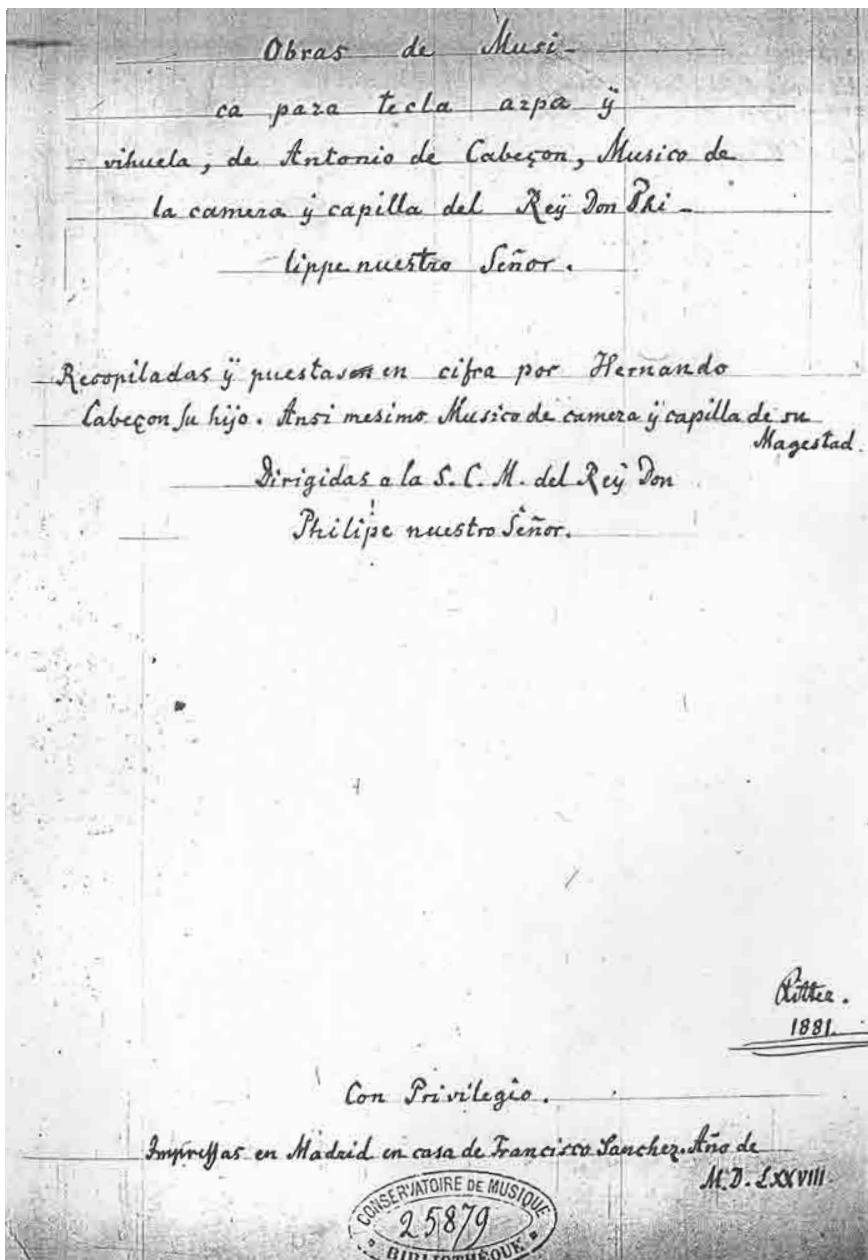 Obras de Musi-
ca para tecla arpa ÿ
vihuela, de Antonio de Cabeçon, Musico de
la camera ÿ capilla del Reÿ Don Phi-
lippe nuestro Señor.
Recopiladas ÿ puestas en cifra por Hernando
Cabeçon su hijo. Ansi mesimo Musico de camera ÿ capilla de su
Magestad.
Dirigidas a la S. C. M. del Reÿ Don
Philipe nuestro Señor.
Ritter.
1881.
Con Privilegio.
Impressas en Madrid en casa de Francisco Sanchez. Año de
M.D. LXXVIII.
CONSERVATOIRE DE MUSIQUE
25879
BIBLIOTHÉQUE